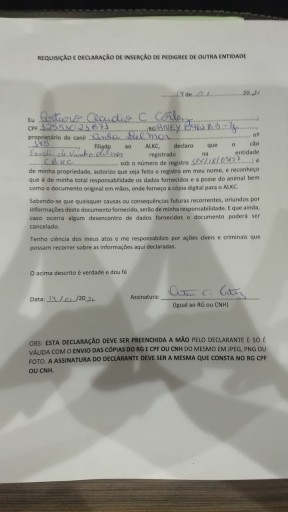 REQUISIÇÃO E DECLARAÇÃO DE INSERÇÃO DE PEDIGREE DE OUTRA ENTIDADE
Eu
CPF RG
proprietário do canil nº
filiado ao ALKC, declaro que o cão
registrado na entidade
CBKC sob o número de registro , é
de minha propriedade, autorizo que seja feito o registro em meu nome, e reconheço
que é de minha total responsabilidade os dados fornecidos e a posse do animal bem
como o documento original em mãos, onde forneço a cópia digital para o ALKC.
Sabendo-se que quaisquer causas ou consequências futuras recorrentes, oriundos por
informações deste documento fornecido, serão de minha responsabilidade. E que ainda,
caso ocorra algum desencontro de dados fornecidos o documento poderá ser
cancelado.
Tenho ciência dos meus atos e me responsabilizo por ações cíveis e criminais que
possam recorrer sobre as informações aqui declaradas.
O acima descrito é verdade e dou fé
Data: Assinatura:
(Igual ao RG ou CNH)
OBS: ESTA DECLARAÇÃO DEVE SER PREENCHIDA A MÃO PELO DECLARANTE E SÓ É
VÁLIDA COM O ENVIO DAS CÓPIAS DO RG E CPF OU CNH DO MESMO EM JPEG, PNG OU
FOTO. A ASSINATURA DO DECLARANTE DEVE SER A MESMA QUE CONSTA NO RG CPF
OU CNH.